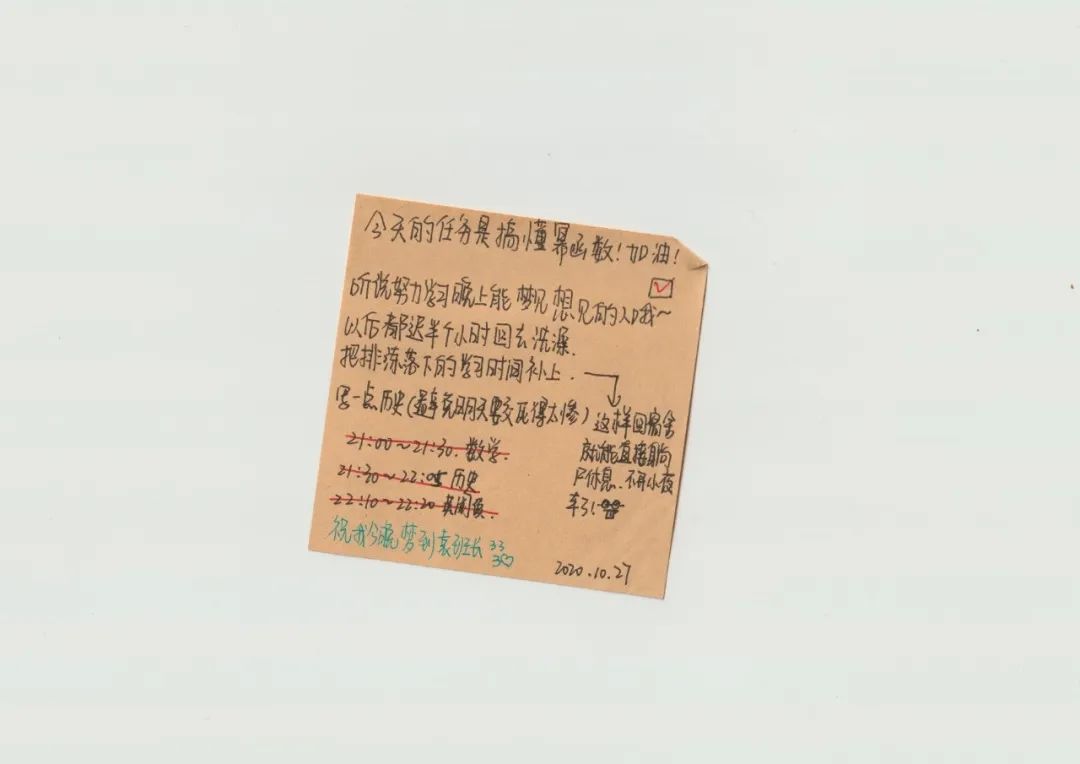 今天的任务是搞懂幂函数!加油!
听说努力学习晚上能梦见想见的人哦~
以后都迟半个小时回去洗澡.
把排练落下的学习时间补上.
思一点历史(避免明天要交死得太惨)
这样回宿舍
就能直接
休息.不开小夜
车了
21:00~21:30.数学.
21:30~22:05 历史
22:10~22:20
祝我今晚梦到袁班长
2020.10.27